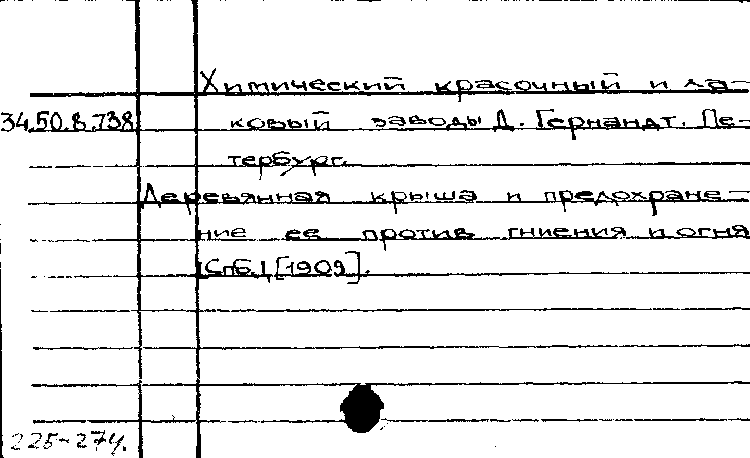 Химический красочный и ла-
34.50.8.738 ковый заводы Д. Гернандт. Пе-
тербург.
Деревянная крыша и предохране-
ние ее против гниения и огня
[Спб.] [1909].
225-274.